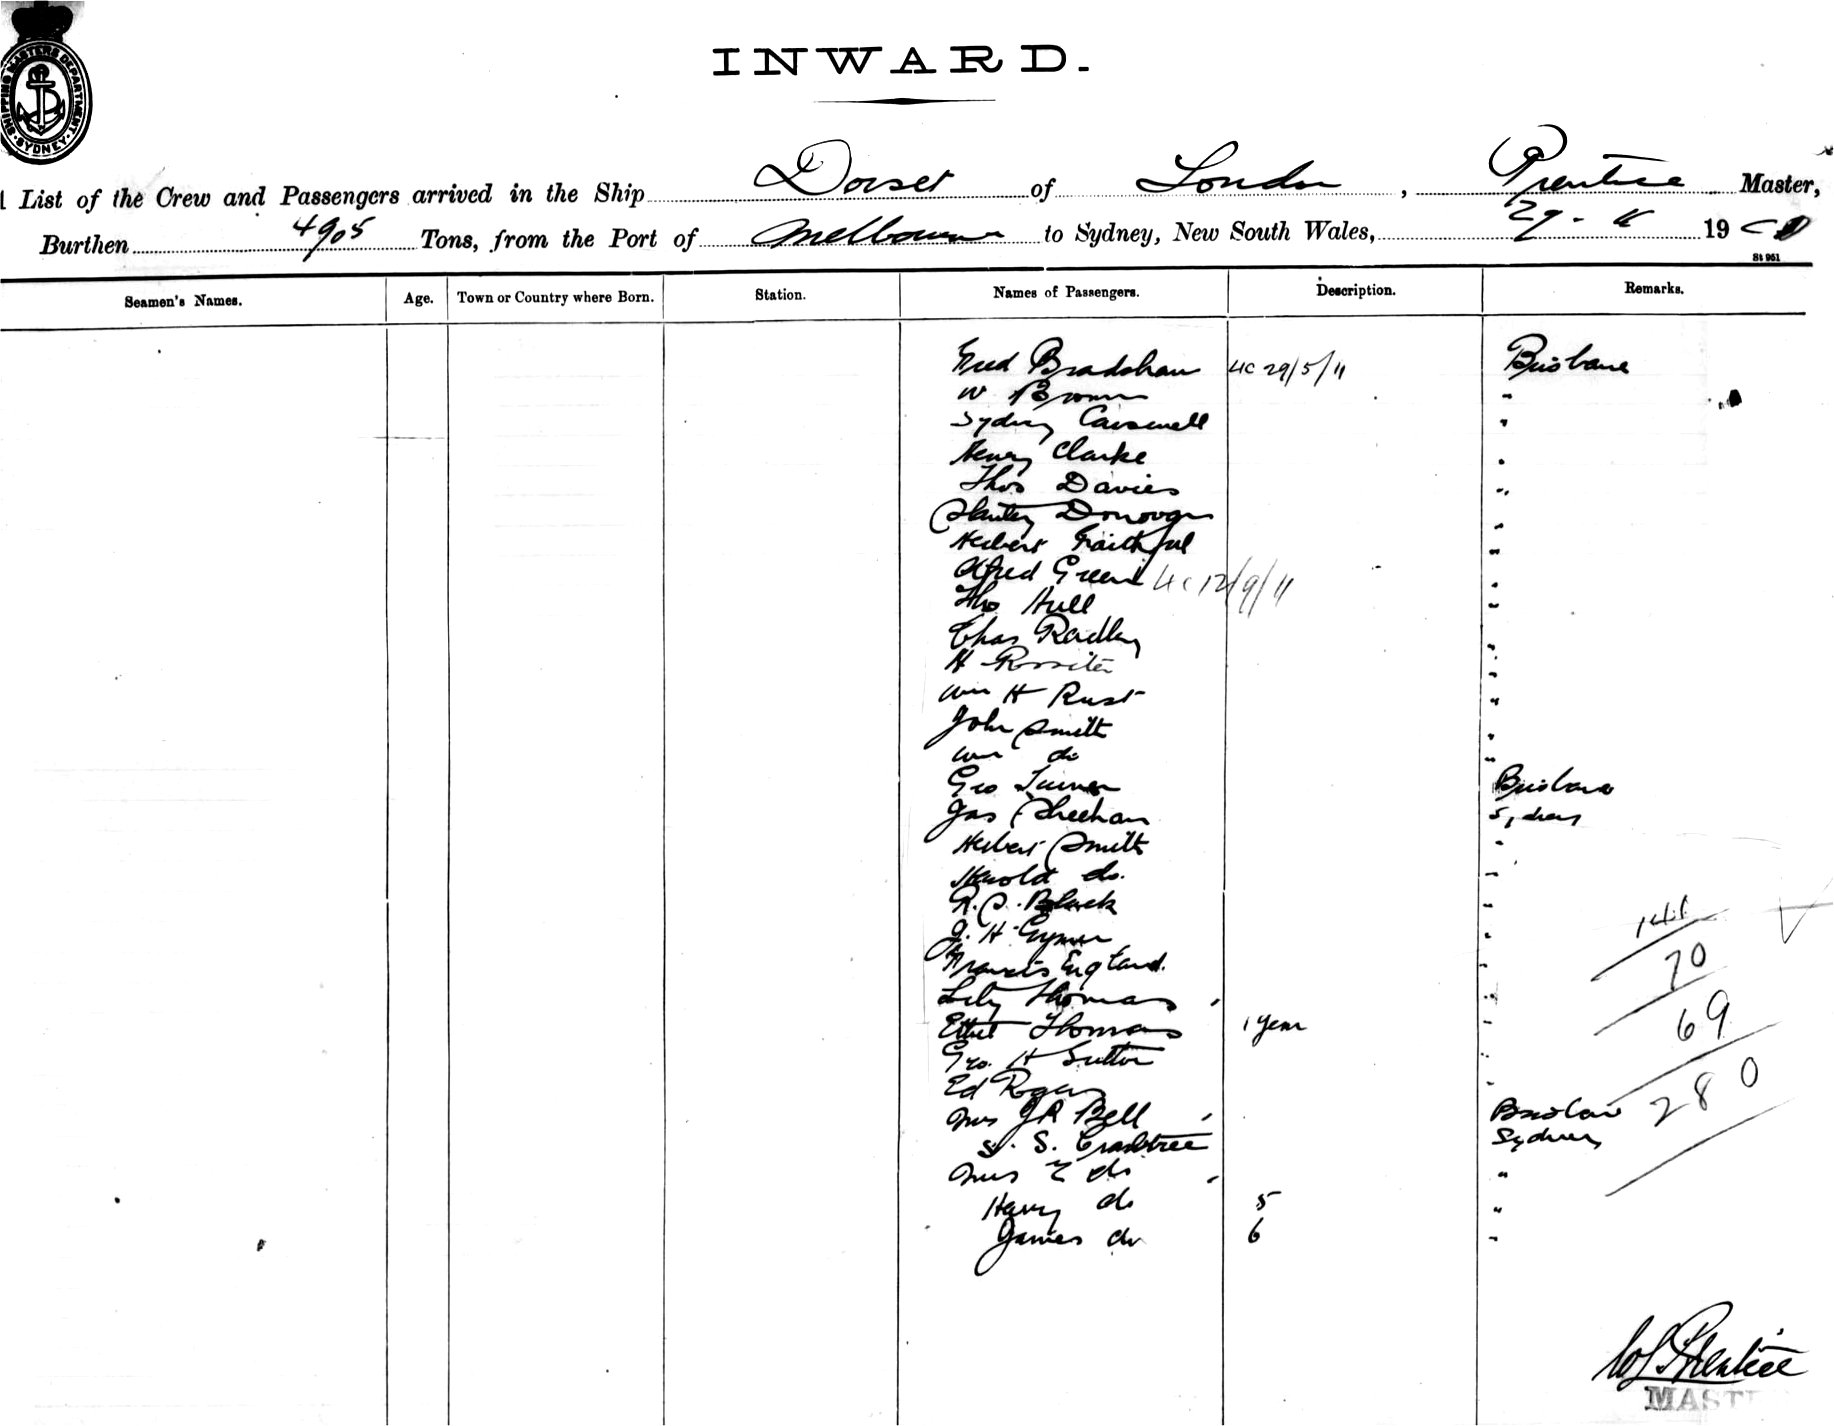 SHIPPING MASTERS DEPARTMENT. SYDNEY.
INWARD.
List of the Crew and Passengers arrived in the Ship Dorset of London, Prentice Master,
Burthen 4905 Tons, from the Port of Melbourne to Sydney, New South Wales, 29 - 19
St 951
Seamen's Names. Age. Town or Country where Born. Station. Names of Passengers. Description. Remarks.
Fred Bradshaw 29/5/11 Brisbane
W Brown "
Sydney Carswell "
Henry Clarke "
Thos Davies "
Stanley Donovan "
Herbert Faithful "
Alfred Green 12/9/11 "
Thos Hull "
Chas Radley "
H Rossiter "
Wm H Rust "
John Smith "
Wm do "
Geo Turner Brisbane
Jas Sheehan Sydney
Herbert Smith "
Harold do. "
R. S. Black "
J. H. Gymer "
Francis England. "
Lily Thomas "
Ethel Thomas 1 year "
Geo. H Sutton "
Ed Rogers "
Mrs JR Bell Brisbane
S. S. Crabtree Sydney
Mrs E do "
Harry do 5 "
James do 6 "
141
70
69
280
W Prentice
MAST